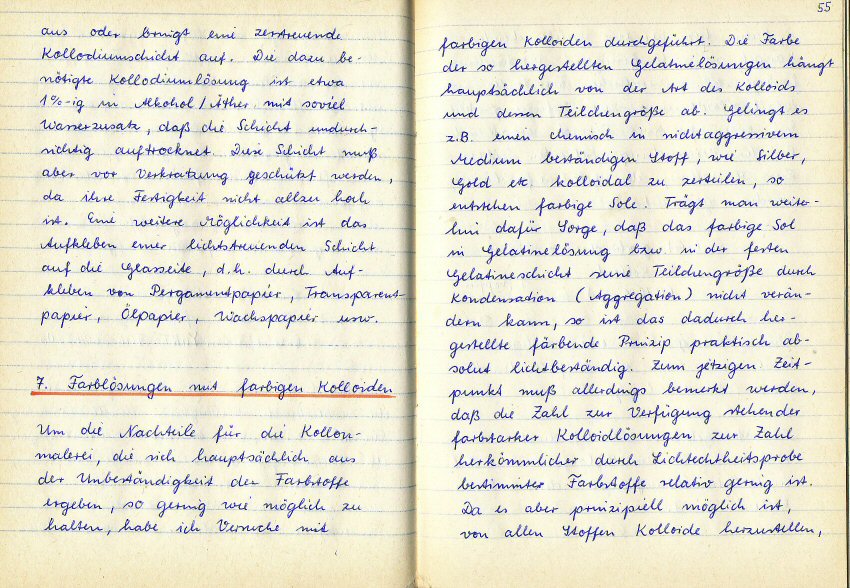 aus oder bringt eine zerstreuende
Kollodiumschicht auf. Die dazu be-
nötigte Kollodiumlösung ist etwa
1%-ig in Alkohol/Äther mit soviel
Wasserzusatz, daß die Schicht undurch-
sichtig auftrocknet. Diese Schicht muß
aber vor Verkratzung geschützt werden,
da ihre Fertigkeit nicht allzu hoch
ist. Eine weitere Möglichkeit ist das
Aufkleben einer lichtstreuenden Schicht
auf die Glasseite, d.h. durch Auf-
kleben von Pergamentpapier, Transparent-
papier, Ölpapier, Wachspapier usw.
7. Farblösungen mit farbigen Kolloiden
Um die Nachteile für die Kollon-
malerei, die sich hauptsächlich aus
der Unbeständigkeit der Farbstoffe
ergeben, so gering wie möglich zu
halten, habe ich Versuche mit
55
farbigen Kolloiden durchgeführt. Die Farbe
der so hergestellten Gelatinelösungen hängt
hauptsächlich von der Art des Kolloids
und dessen Teilchengröße ab. Gelingt es
z.B. einen chemisch in nichtaggressivem
Medium beständigen Stoff, wie Silber,
Gold etc. kolloidal zu zerteilen, so
entstehen farbige Sole. Trägt man weiter-
hin dafür Sorge, daß das farbige Sol
in Gelatinelösung bzw. in der festen
Gelatineschicht seine Teilchengröße durch
Kondensation (Aggregation) nicht verän-
dern kann, so ist das dadurch her-
gestellte färbende Prinzip praktisch ab-
solut lichtbeständig. Zum jetzigen Zeit-
punkt muß allerdings bemerkt werden,
daß die Zahl zur Verfügung stehender
farbstarker Kolloidlösungen zur Zahl
herkömmlicher durch Lichtechtheitsprobe
bestimmter Farbstoffe relativ gering ist.
Da es aber prinzipiell möglich ist,
von allen Stoffen Kolloide herzustellen,